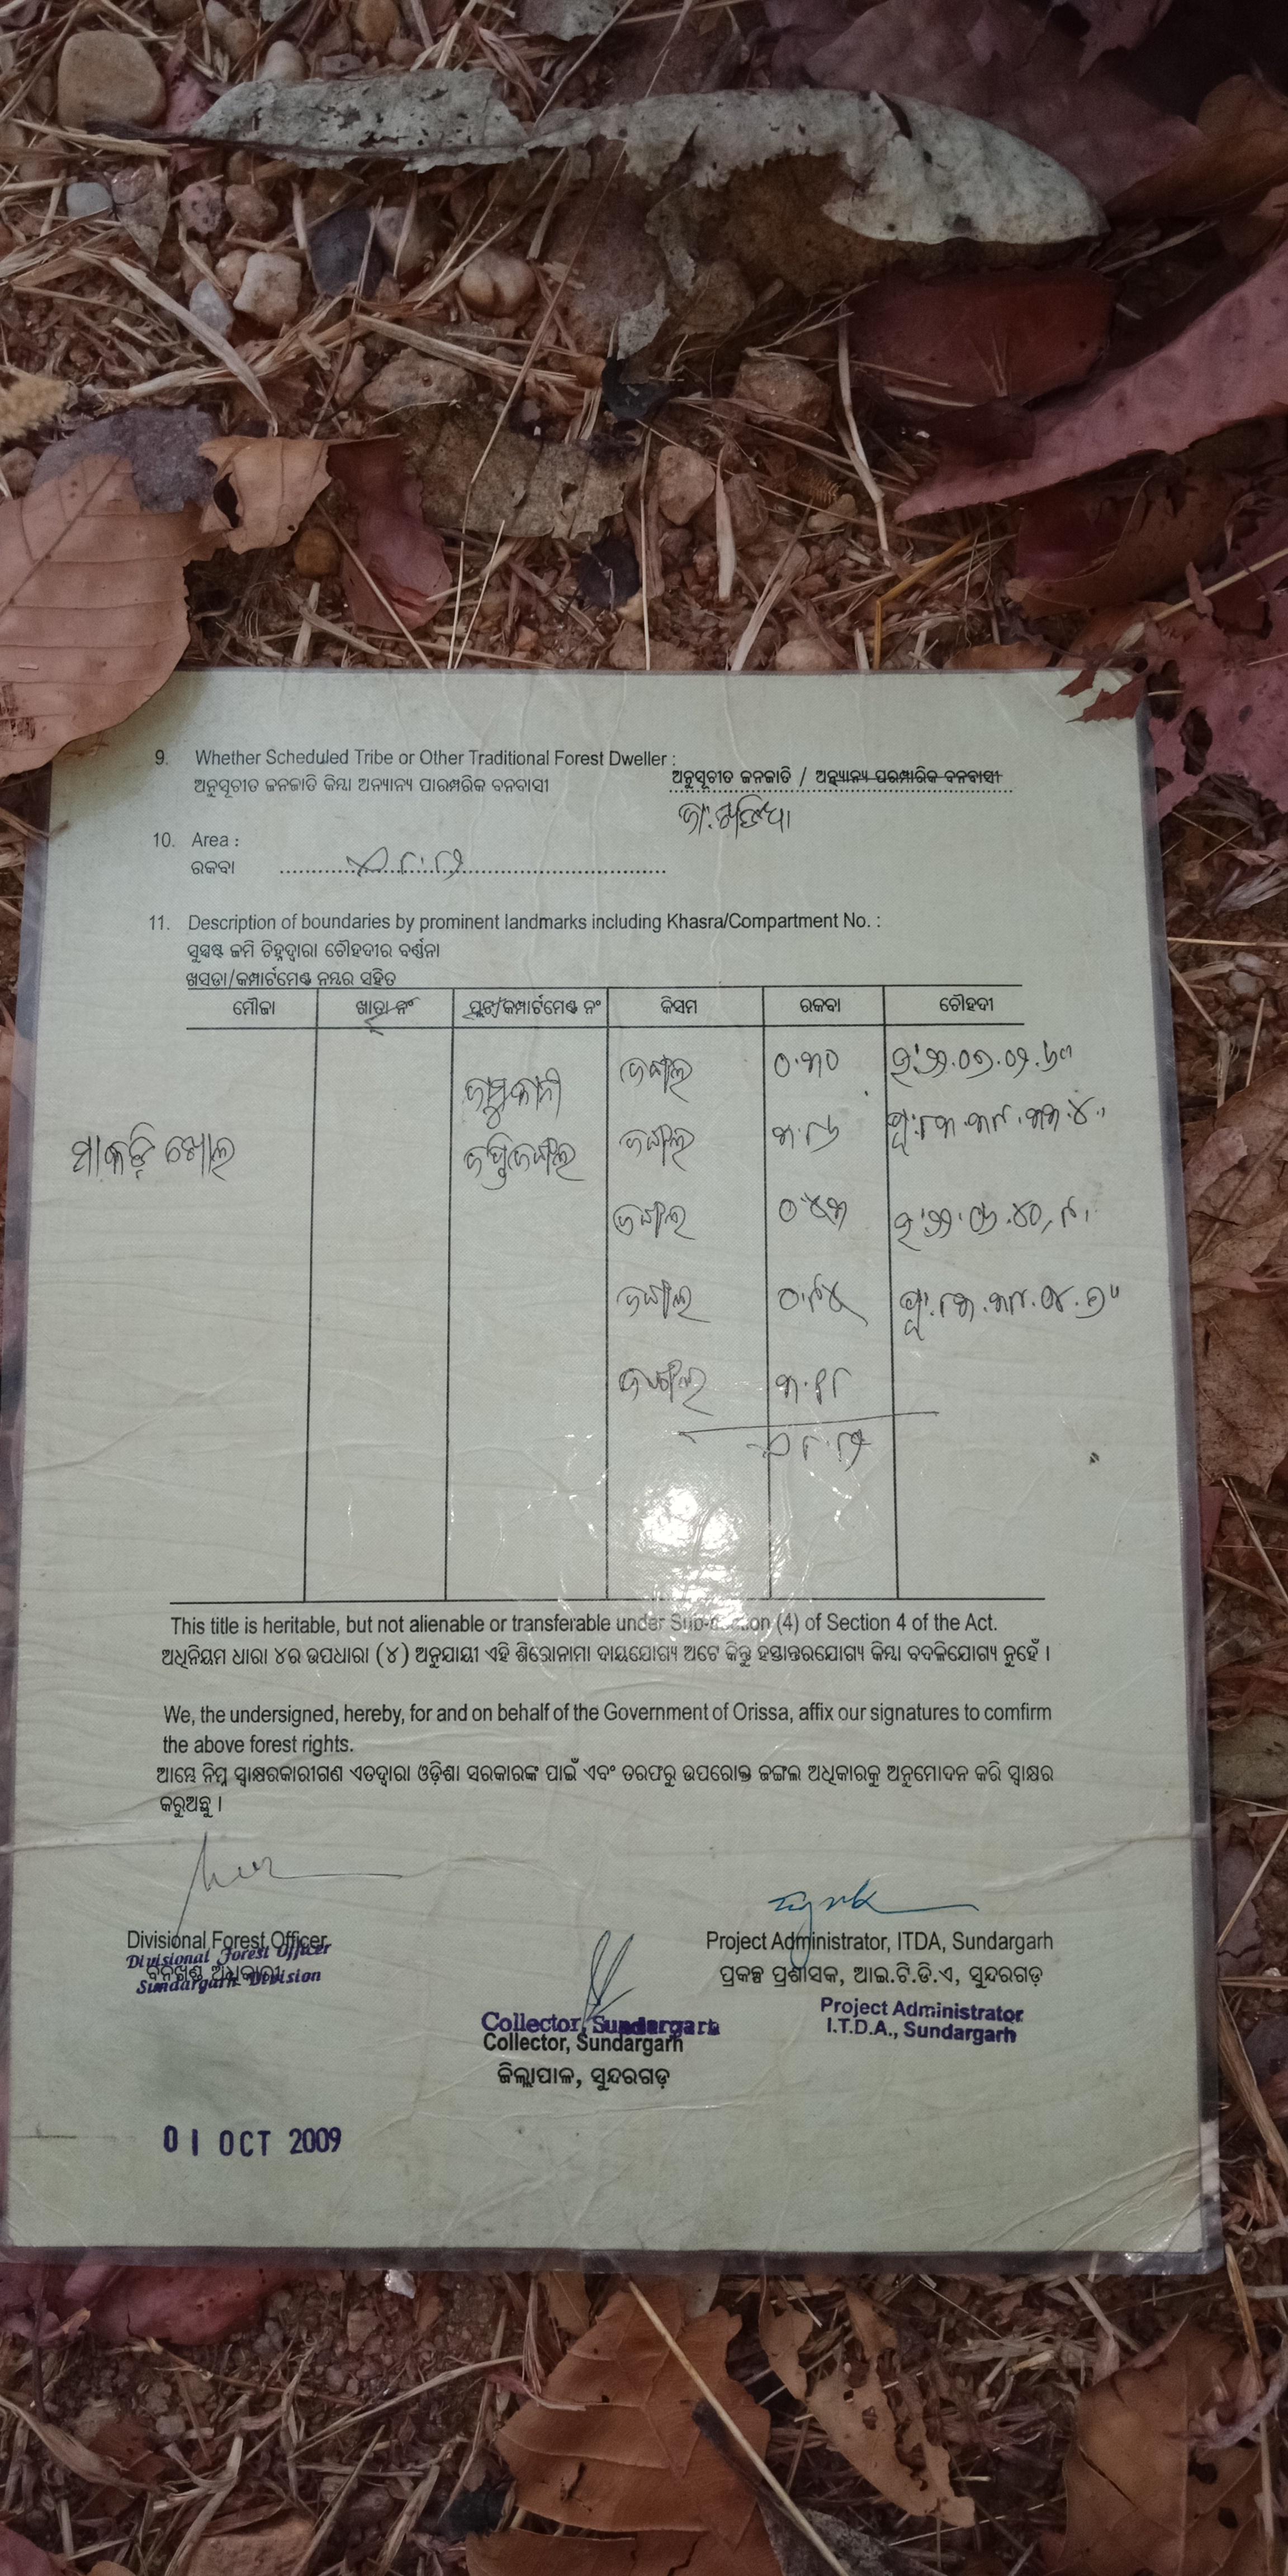 9. Whether Scheduled Tribe or Other Traditional Forest Dweller :
ଅନୁସୂଚୀତ ଜନଜାତି କିମ୍ବା ଅନ୍ୟାନ୍ୟ ପାରମ୍ପରିକ ବନବାସୀ
ଅନୁସୂଚୀତ ଜନଜାତି / ଅନ୍ୟାନ୍ୟ ପାରମ୍ପାରିକ ବନବାସୀ
10. Area :
ରକବା
11. Description of boundaries by prominent landmarks including Khasra/Compartment No. :
ସୁସ୍ପଷ୍ଟ ଜମି ଚିହ୍ନଦ୍ୱାରା ଚୌହଦୀର ବର୍ଣ୍ଣନା
ଖସଡା/କମ୍ପାର୍ଟମେଣ୍ଟ ନମ୍ବର ସହିତ
ମୌଜା ଖାତା ନଂ ପ୍ଲଟ/କମ୍ପାର୍ଟମେଣ୍ଟ ନଂ କିସମ ରକବା ଚୌହଦୀ
ଜଙ୍ଗଲ ୦.୩୦
ମାକଡ଼ି ଖୋଲ
ଜଙ୍ଗଲ
ଜଙ୍ଗଲ ୦.୪୩
ଜଙ୍ଗଲ
ଜଙ୍ଗଲ
This title is heritable, but not alienable or transferable under Sub-section (4) of Section 4 of the Act.
ଅଧିନିୟମ ଧାରା ୪ର ଉପଧାରା (୪) ଅନୁଯାୟୀ ଏହି ଶିରୋନାମା ଦାୟଯୋଗ୍ୟ ଅଟେ କିନ୍ତୁ ହସ୍ତାନ୍ତରଯୋଗ୍ୟ କିମ୍ବା ବଦଳିଯୋଗ୍ୟ ନୁହେଁ ।
We, the undersigned, hereby, for and on behalf of the Government of Orissa, affix our signatures to comfirm
the above forest rights.
ଆମ୍ଭେ ନିମ୍ନ ସ୍ୱାକ୍ଷରକାରୀଗଣ ଏତଦ୍ୱାରା ଓଡ଼ିଶା ସରକାରଙ୍କ ପାଇଁ ଏବଂ ତରଫରୁ ଉପରୋକ୍ତ ଜଙ୍ଗଲ ଅଧିକାରକୁ ଅନୁମୋଦନ କରି ସ୍ୱାକ୍ଷର
କରୁଅଛୁ ।
Divisional Forest Officer
Divisional Forest Officer
ବନଖଣ୍ଡ ଅଧିକାରୀ
Sundargarh Division
Project Administrator, ITDA, Sundargarh
ପ୍ରକଳ୍ପ ପ୍ରଶାସକ, ଆଇ.ଟି.ଡି.ଏ, ସୁନ୍ଦରଗଡ଼
Project Administrator
I.T.D.A., Sundargarh
Collector, Sundargarh
Collector, Sundargarh
ଜିଲ୍ଲାପାଳ, ସୁନ୍ଦରଗଡ଼
01 OCT 2009